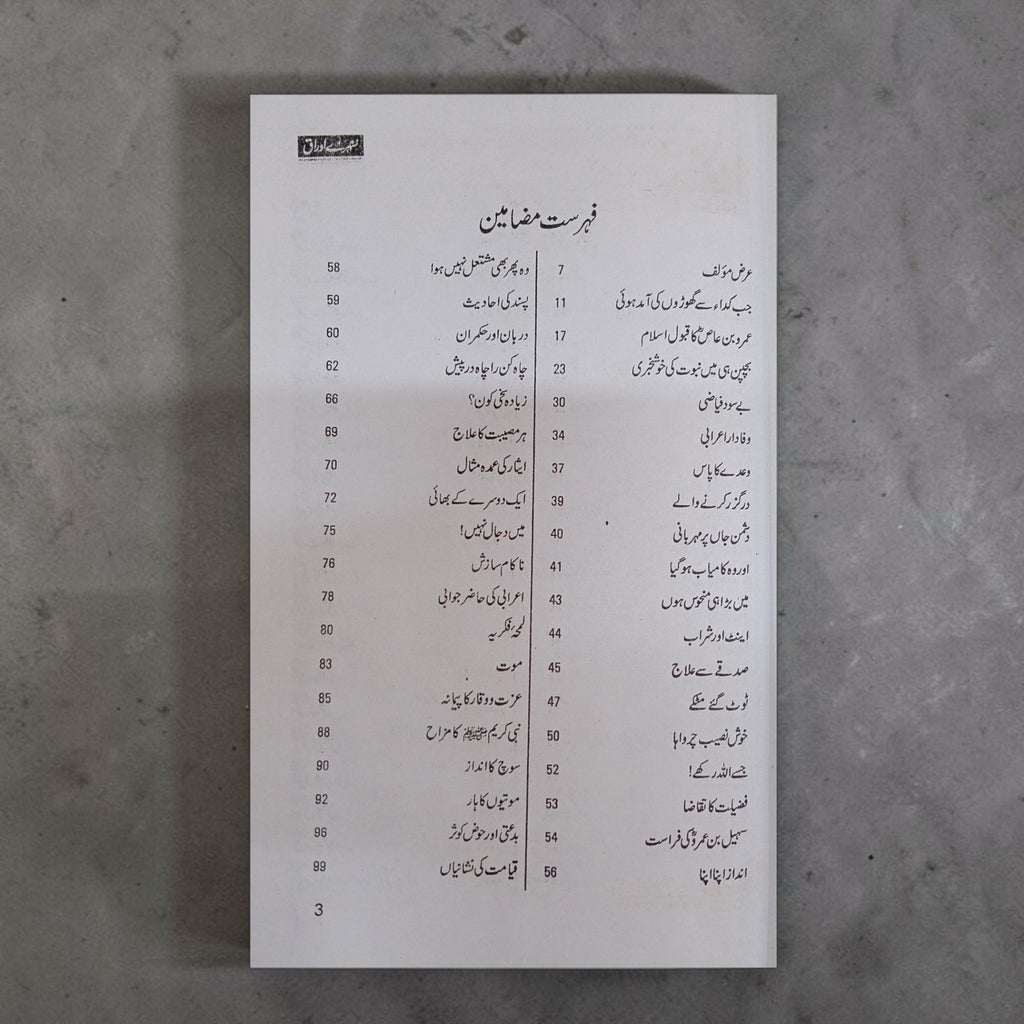 سنہرے اوراق
فہرست مضامین
عرض مؤلف 7
جب کداء سے گھوڑوں کی آمد ہوئی 11
عمرو بن عاصؓ کا قبول اسلام 17
بچپن ہی میں نبوت کی خوشخبری 23
بے سود فیاضی 30
وفادار اعرابی 34
وعدے کا پاس 37
درگزر کرنے والے 39
دشمن جاں پر مہربانی 40
اور وہ کامیاب ہوگیا 41
میں بڑا ہی منحوس ہوں 43
اینٹ اور شراب 44
صدقے سے علاج 45
ٹوٹ گئے مٹکے 47
خوش نصیب چرواہا 50
جسے اللہ رکھے! 52
فضیلت کا تقاضا 53
سہیل بن عمروؓ کی فراست 54
انداز اپنا اپنا 56
وہ پھر بھی مشتعل نہیں ہوا 58
پسند کی احادیث 59
دربان اور حکمران 60
چاہ کن را چاہ در پیش 62
زیادہ سخی کون؟ 66
ہر مصیبت کا علاج 69
ایثار کی عمدہ مثال 70
ایک دوسرے کے بھائی 72
میں دجال نہیں! 75
ناکام سازش 76
اعرابی کی حاضر جوابی 78
لمحۂ فکریہ 80
موت 83
عزت و وقار کا پیمانہ 85
نبی کریم ﷺ کا مزاح 88
سوچ کا انداز 90
موتیوں کا ہار 92
بدعتی اور حوض کوثر 96
قیامت کی نشانیاں 99
3